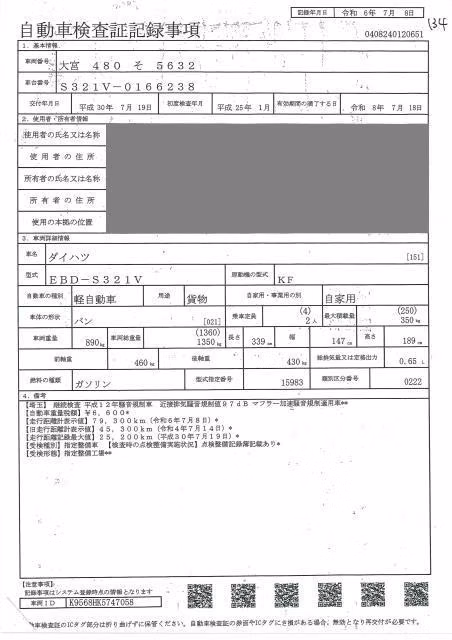 記録年月日 令和 6年 7月 8日
134
自動車検査証記録事項
0408240120651
1. 基本情報
車両番号 大宮 480 そ 5632
車台番号 S321V-0166238
交付年月日 平成30年 7月 19日 初度検査年月 平成25年 1月 有効期間の満了する日 令和 8年 7月 18日
2. 使用者・所有者情報
使用者の氏名又は名称
使用者の住所
所有者の氏名又は名称
所有者の住所
使用の本拠の位置
3. 車両詳細情報
車名 ダイハツ [151]
型式 EBD-S321V 原動機の型式 KF
自動車の種別 軽自動車 用途 貨物 自家用・事業用の別 自家用
車体の形状 バン [021] 乗車定員 (4) 2人 最大積載量 (250) 350kg
車両重量 890kg 車両総重量 (1360) 1350kg 長さ 339cm 幅 147cm 高さ 189cm
前軸重 460kg 後軸重 430kg 総排気量又は定格出力 0.65L
燃料の種類 ガソリン 型式指定番号 15983 類別区分番号 0222
4. 備考
【埼玉】 継続検査 平成12年騒音規制車 近接排気騒音規制値97dB マフラー加速騒音規制適用車**
【自動車重量税額】¥6,600*
【走行距離計表示値】79,300km(令和6年7月8日)*
【旧走行距離計表示値】45,300km(令和4年7月14日)*
【走行距離記録最大値】25,200km(平成30年7月19日)*
【受検種別】指定整備車 【検査時の点検整備実施状況】点検整備記録簿記載あり*
【受検形態】指定整備工場**
【注意事項】
記録事項はシステム登録時点の情報となります
車両ID K9568HK5747058
車検査証のICタグ部分は折り曲げずに保管ください。自動車検査証の券面やICタグにき損がある場合、無効となり再交付が必要です。